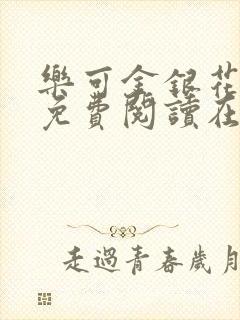 樂可金銀花
免費閱讀在
走過青春歲月